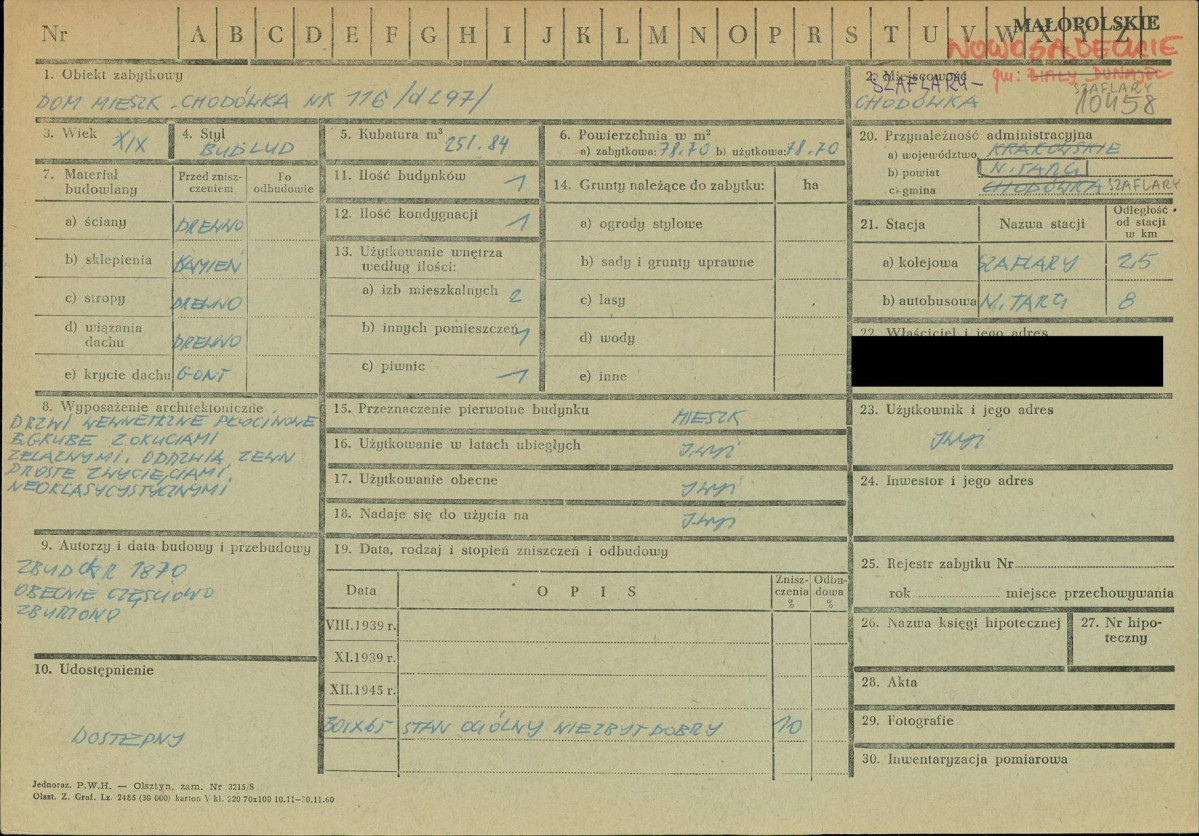 Nr A B C D E F G H I J K L M N O P R S T U V W X Y Z
MAŁOPOLSKIE
NOWOSĄDECKIE
gm: BIAŁY DUNAJEC
SZAFLARY
10458
1. Obiekt zabytkowy
DOM MIESZK. CHODÓWKA NR 116 /d L97/
2. Miejscowość
SZAFLARY-
CHODÓWKA
3. Wiek XIX
4. Styl BUD LUD
5. Kubatura m³ 251.84
6. Powierzchnia w m²
a) zabytkowa: 78.70 b) użytkowa: 78.70
7. Materiał budowlany
Przed zniszczeniem
Po odbudowie
a) ściany DREWNO
b) sklepienia KAMIEŃ
c) stropy DREWNO
d) wiązania dachu DREWNO
e) krycie dachu GONT
8. Wyposażenie architektoniczne
DRZWI WEWNĘTRZNE PŁOCINOWE
B. GRUBE Z OKUCIAMI
ŻELAZNYMI. ODDRZWIA ZEWN
PROSTE Z WYCIĘCIAMI
NEOKLASYCYSTYCZNYMI
9. Autorzy i data budowy i przebudowy
ZBUD OK R 1870
OBECNIE CZĘŚCIOWO
ZBURZONO
10. Udostępnienie
DOSTĘPNY
11. Ilość budynków 1
12. Ilość kondygnacji 1
13. Użytkowanie wnętrza według ilości:
a) izb mieszkalnych 2
b) innych pomieszczeń 1
c) piwnic 1
14. Grunty należące do zabytku: ha
a) ogrody stylowe
b) sady i grunty uprawne
c) lasy
d) wody
e) inne
15. Przeznaczenie pierwotne budynku MIESZK
16. Użytkowanie w latach ubiegłych
17. Użytkowanie obecne
18. Nadaje się do użycia na
19. Data, rodzaj i stopień zniszczeń i odbudowy
Data OPIS Zniszczenia % Odbudowa %
VIII.1939 r.
XI.1939 r.
XII.1945 r.
30 IX 65 STAN OGÓLNY NIEZBYT DOBRY 10
20. Przynależność administracyjna
a) województwo KRAKOWSKIE
b) powiat N. TARG
c) gmina CHODÓWKA SZAFLARY
21. Stacja Nazwa stacji Odległość od stacji w km
a) kolejowa SZAFLARY 2,5
b) autobusowa N. TARG 8
22. Właściciel i jego adres
23. Użytkownik i jego adres
24. Inwestor i jego adres
25. Rejestr zabytku Nr
rok miejsce przechowywania
26. Nazwa księgi hipotecznej
27. Nr hipoteczny
28. Akta
29. Fotografie
30. Inwentaryzacja pomiarowa
Jednoraz. P.W.H. — Olsztyn, zam. Nr 3215/S
Olszt. Z. Graf. Lz. 2485 (30 000) karton V kl. 220 70x100 10.II-30.11.60